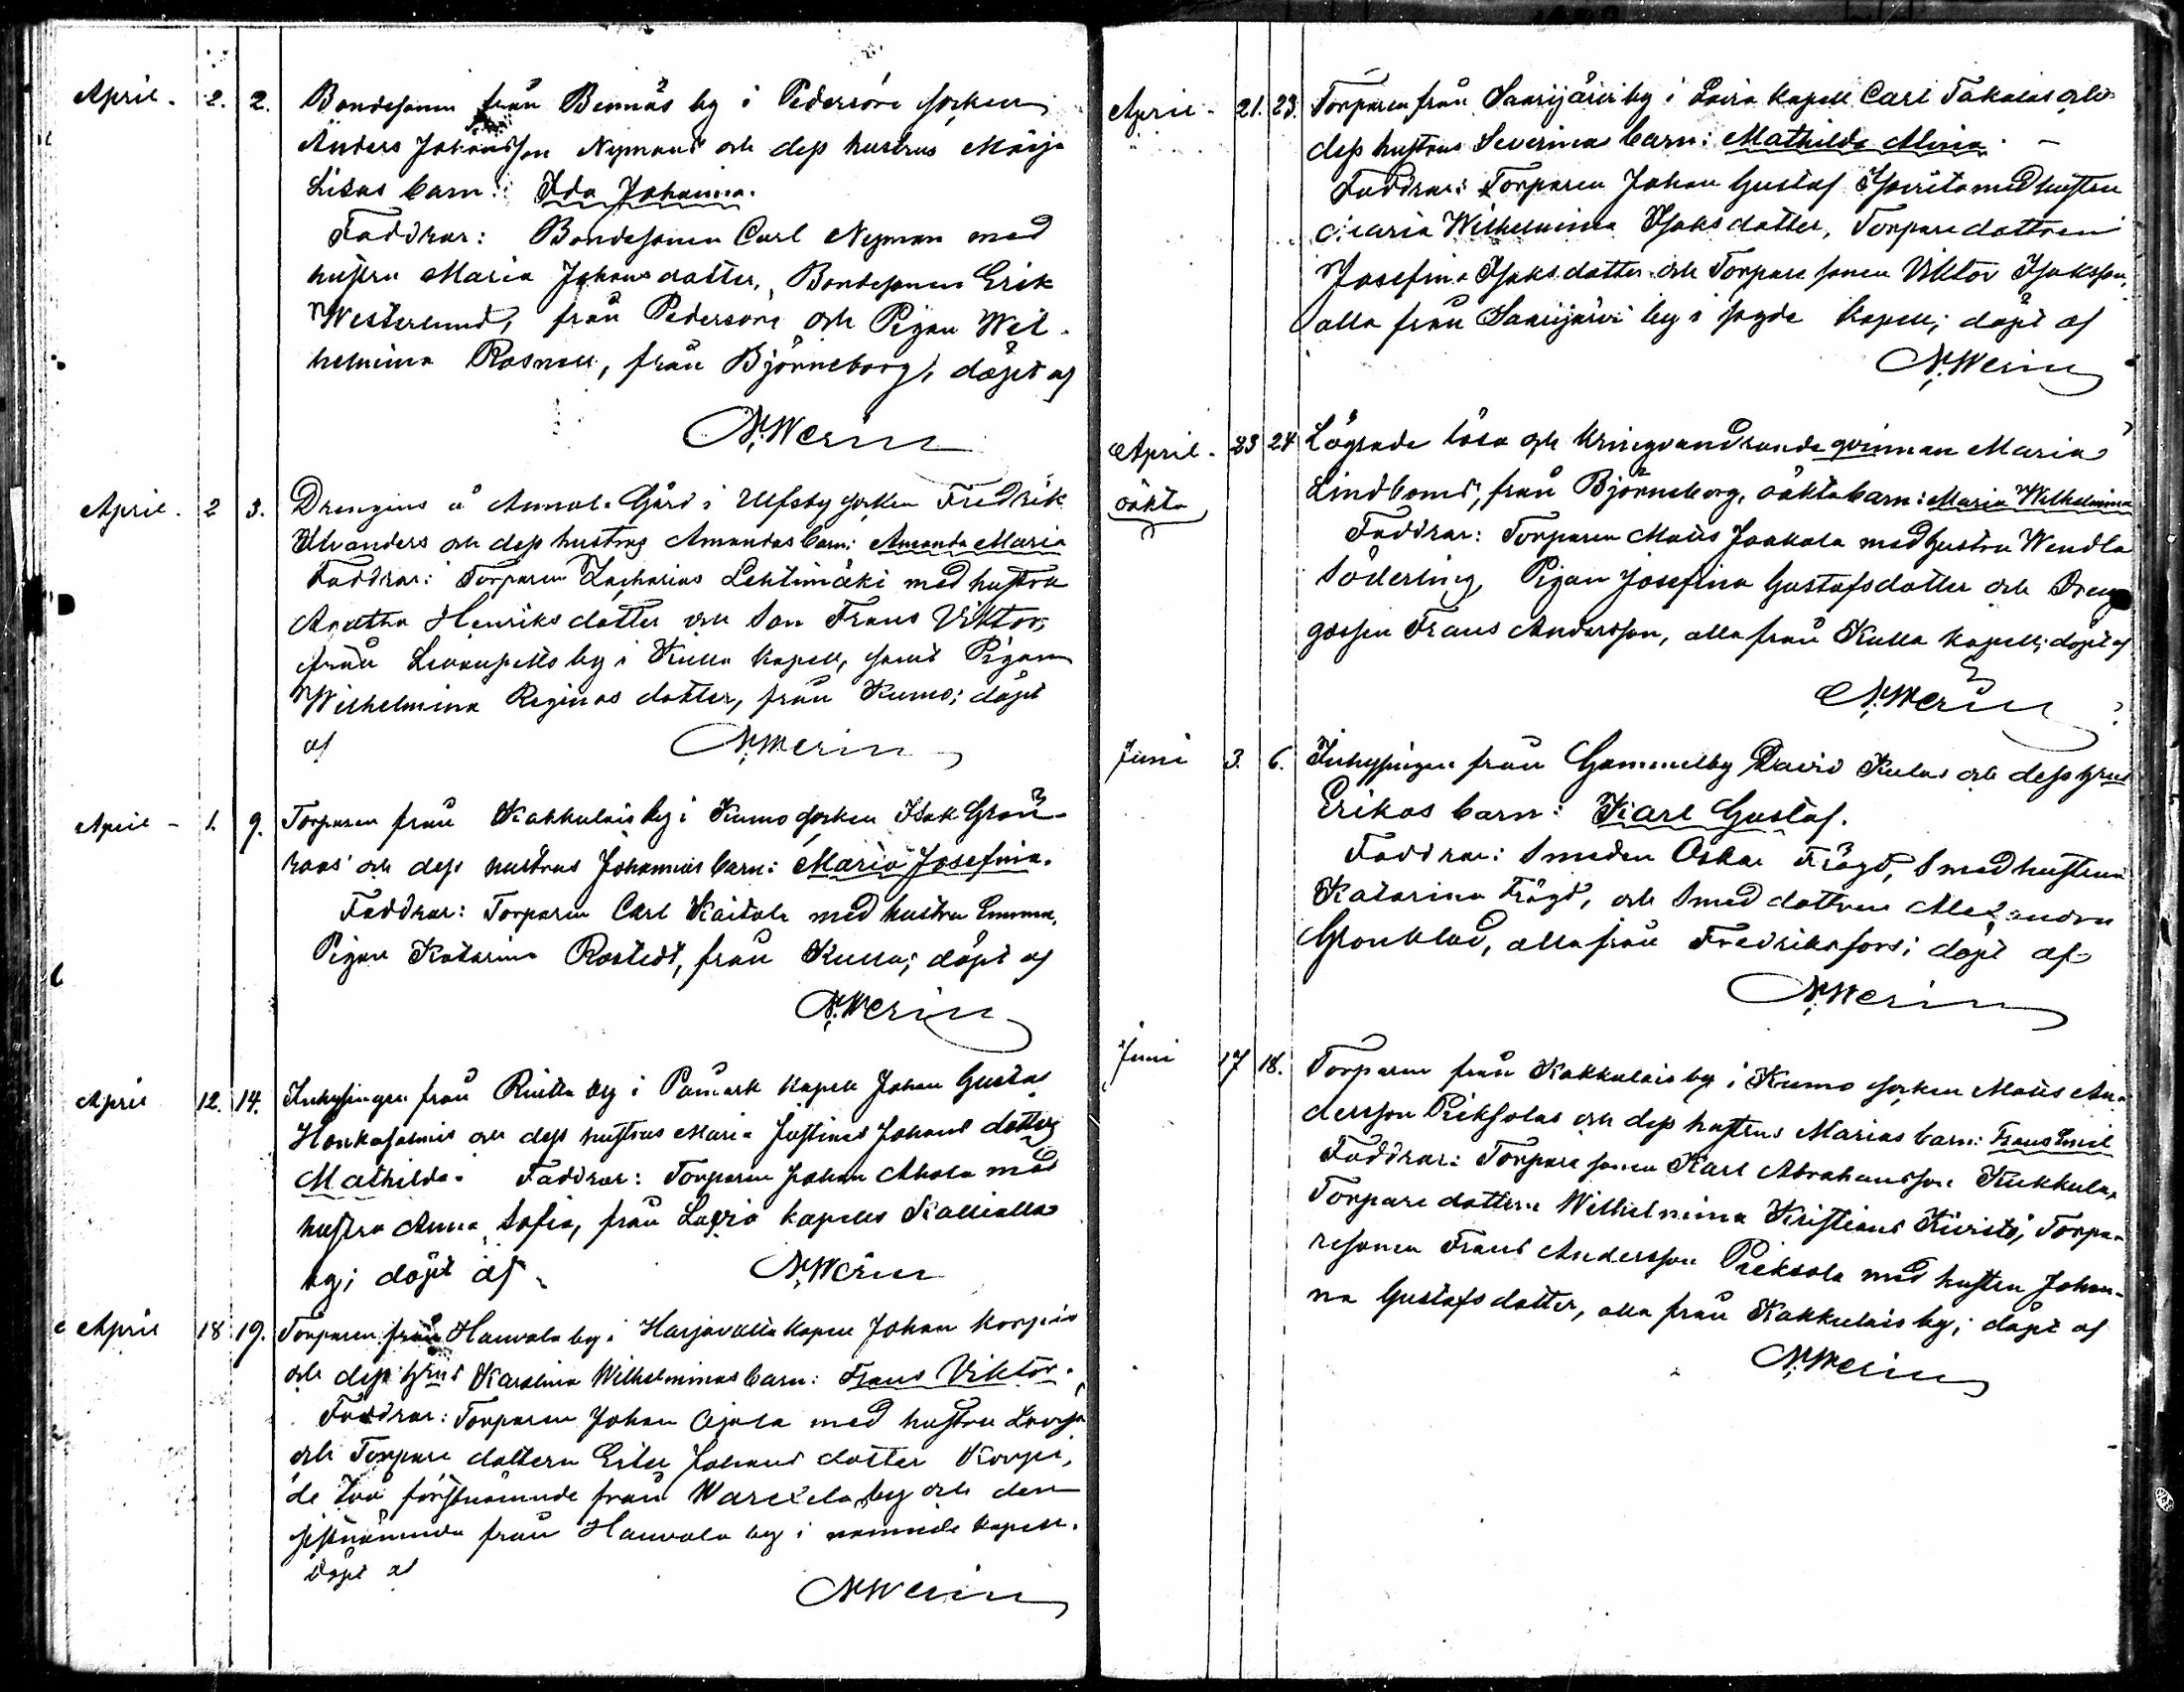 April. 2. 2. Bondesonen från Bennäs by i Pedersöre socken
Anders Johansson Nymans och dess hustrus Maija
Lisas barn: Ida Johanna.
Faddrar: Bondesonen Carl Nyman med
hustru Maria Johansdotter, Bondesonen Erik
Westerlund, från Pedersöre och Pigan Wil-
helmina Rosnell, från Björneborg; döpt af
N. Werin
April. 2 3. Drengens å Annola Gård i Ulfsby socken Fredrik
och dess hustrus Amandas barn: Amanda Maria
Faddrar: Torparen Zacharias Lehtimäki med hustru
Agatha Henriksdotter och Son Frans Viktor,
från by i Kulla kapell, samt Pigan
Wilhelmina Reginas dotter, från Kumo; döpt
af N. Werin
April - 1. 9. Torparen från Kakkulais by i Kumo socken Isak Grön-
roos' och dess hustrus Johannas barn: Maria Josefina.
Faddrar: Torparen Carl Kaitala med hustru Emma,
Pigan Katarina Rostedt, från Kulla; döpt af
N. Werin
April 12. 14. Inhysingen från by i Påmark kapell Johan Gustaf
Honkasalmis och dess hustrus Maria Justina Johans dotter
Mathilda. Faddrar: Torparen Johan Ahola med
hustru Anna Sofia, från kapells Kallialla
by; döpt af N. Werin
April 18 19. Torparen från Hauvola by i Harjavalla kapell Johan Korpis
och dess hrus Karolina Wilhelminas barn: Frans Viktor.
Faddrar: Torparen Johan Ojala med hustru Lovisa
och Torpare dottern Ester Johans dotter Korpi,
de två förstnämnde från by och den
sistnämnda från Hauvola by i nämnde kapell.
döpt af
N. Werin
April - 21. 23. Torparen från Saarijärvi by i kapell Carl Takalas och
dess hustrus Severinas barn: Mathilda Alina. -
Faddrar: Torparen Johan Gustaf med hustru
Maria Wilhelmina Isaksdotter, Torparedottren
Josefina Isaksdotter och Torpare sonen Viktor Isaksson,
alla från Saarijärvi by i sagde kapell; döpt af
N. Werin
April - 23 24 Lägrade lösa och kringvandrande qvinnan Maria
oäkta Lindboms, från Björneborg, oäkta barn: Maria Wilhelmina
Faddrar: Torparen Matts Jaakola med hustru Wendla
Söderling, Pigan Josefina Gustafsdotter och Dreng
gossen Frans Andersson, alla från Kulla kapell; döpt af
N. Werin
Juni 3. 6. Inhysingen från Gammelby David Kulas och dess hrus
Erikas barn: Karl Gustaf.
Faddrar: Smeden Oskar Frögd, Smedhustrun
Katarina Frögd, och Smed dottren Alexandra
Gronblad, alla från Fredriksfors; döpt af
N. Werin
Juni 17 18. Torparen från Kakkulais by i Kumo socken Matts An-
dersson Pieksolas och dess hustrus Marias barn: Frans Emil
Faddrar: Torpare sonen Karl Abrahamsson Kukkula,
Torpare dottern Wilhelmina Kristians Kivistö, Torpa-
resonen Frans Andersson Pieksola med hustru Johan-
na Gustafsdotter, alla från Kakkulais by; döpt af
N. Werin